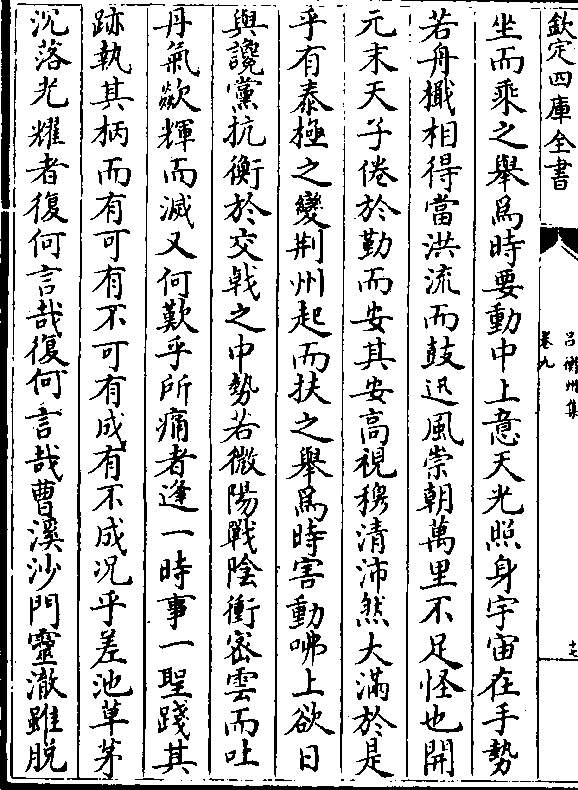 欽定四庫全書
呂衡州集
卷九
坐而乘之舉爲時要動中上意天光照身宇宙在手勢
若舟檝相得當洪流而鼓迅風崇朝萬里不足怪也開
元末天子倦於勤而安其安高視穆清沛然大滿於是
乎有泰極之變荆州起而扶之舉爲時害動咈上欲日
與讒黨抗衡於交戟之中勢若微陽戰陰衝密雲而吐
丹氣歘輝而滅又何歎乎所痛者逢一時事一聖踐其
跡執其柄而有可有不可有成有不成况乎差池草茅
沉落光耀者復何言哉復何言哉曹溪沙門靈澈雖脱